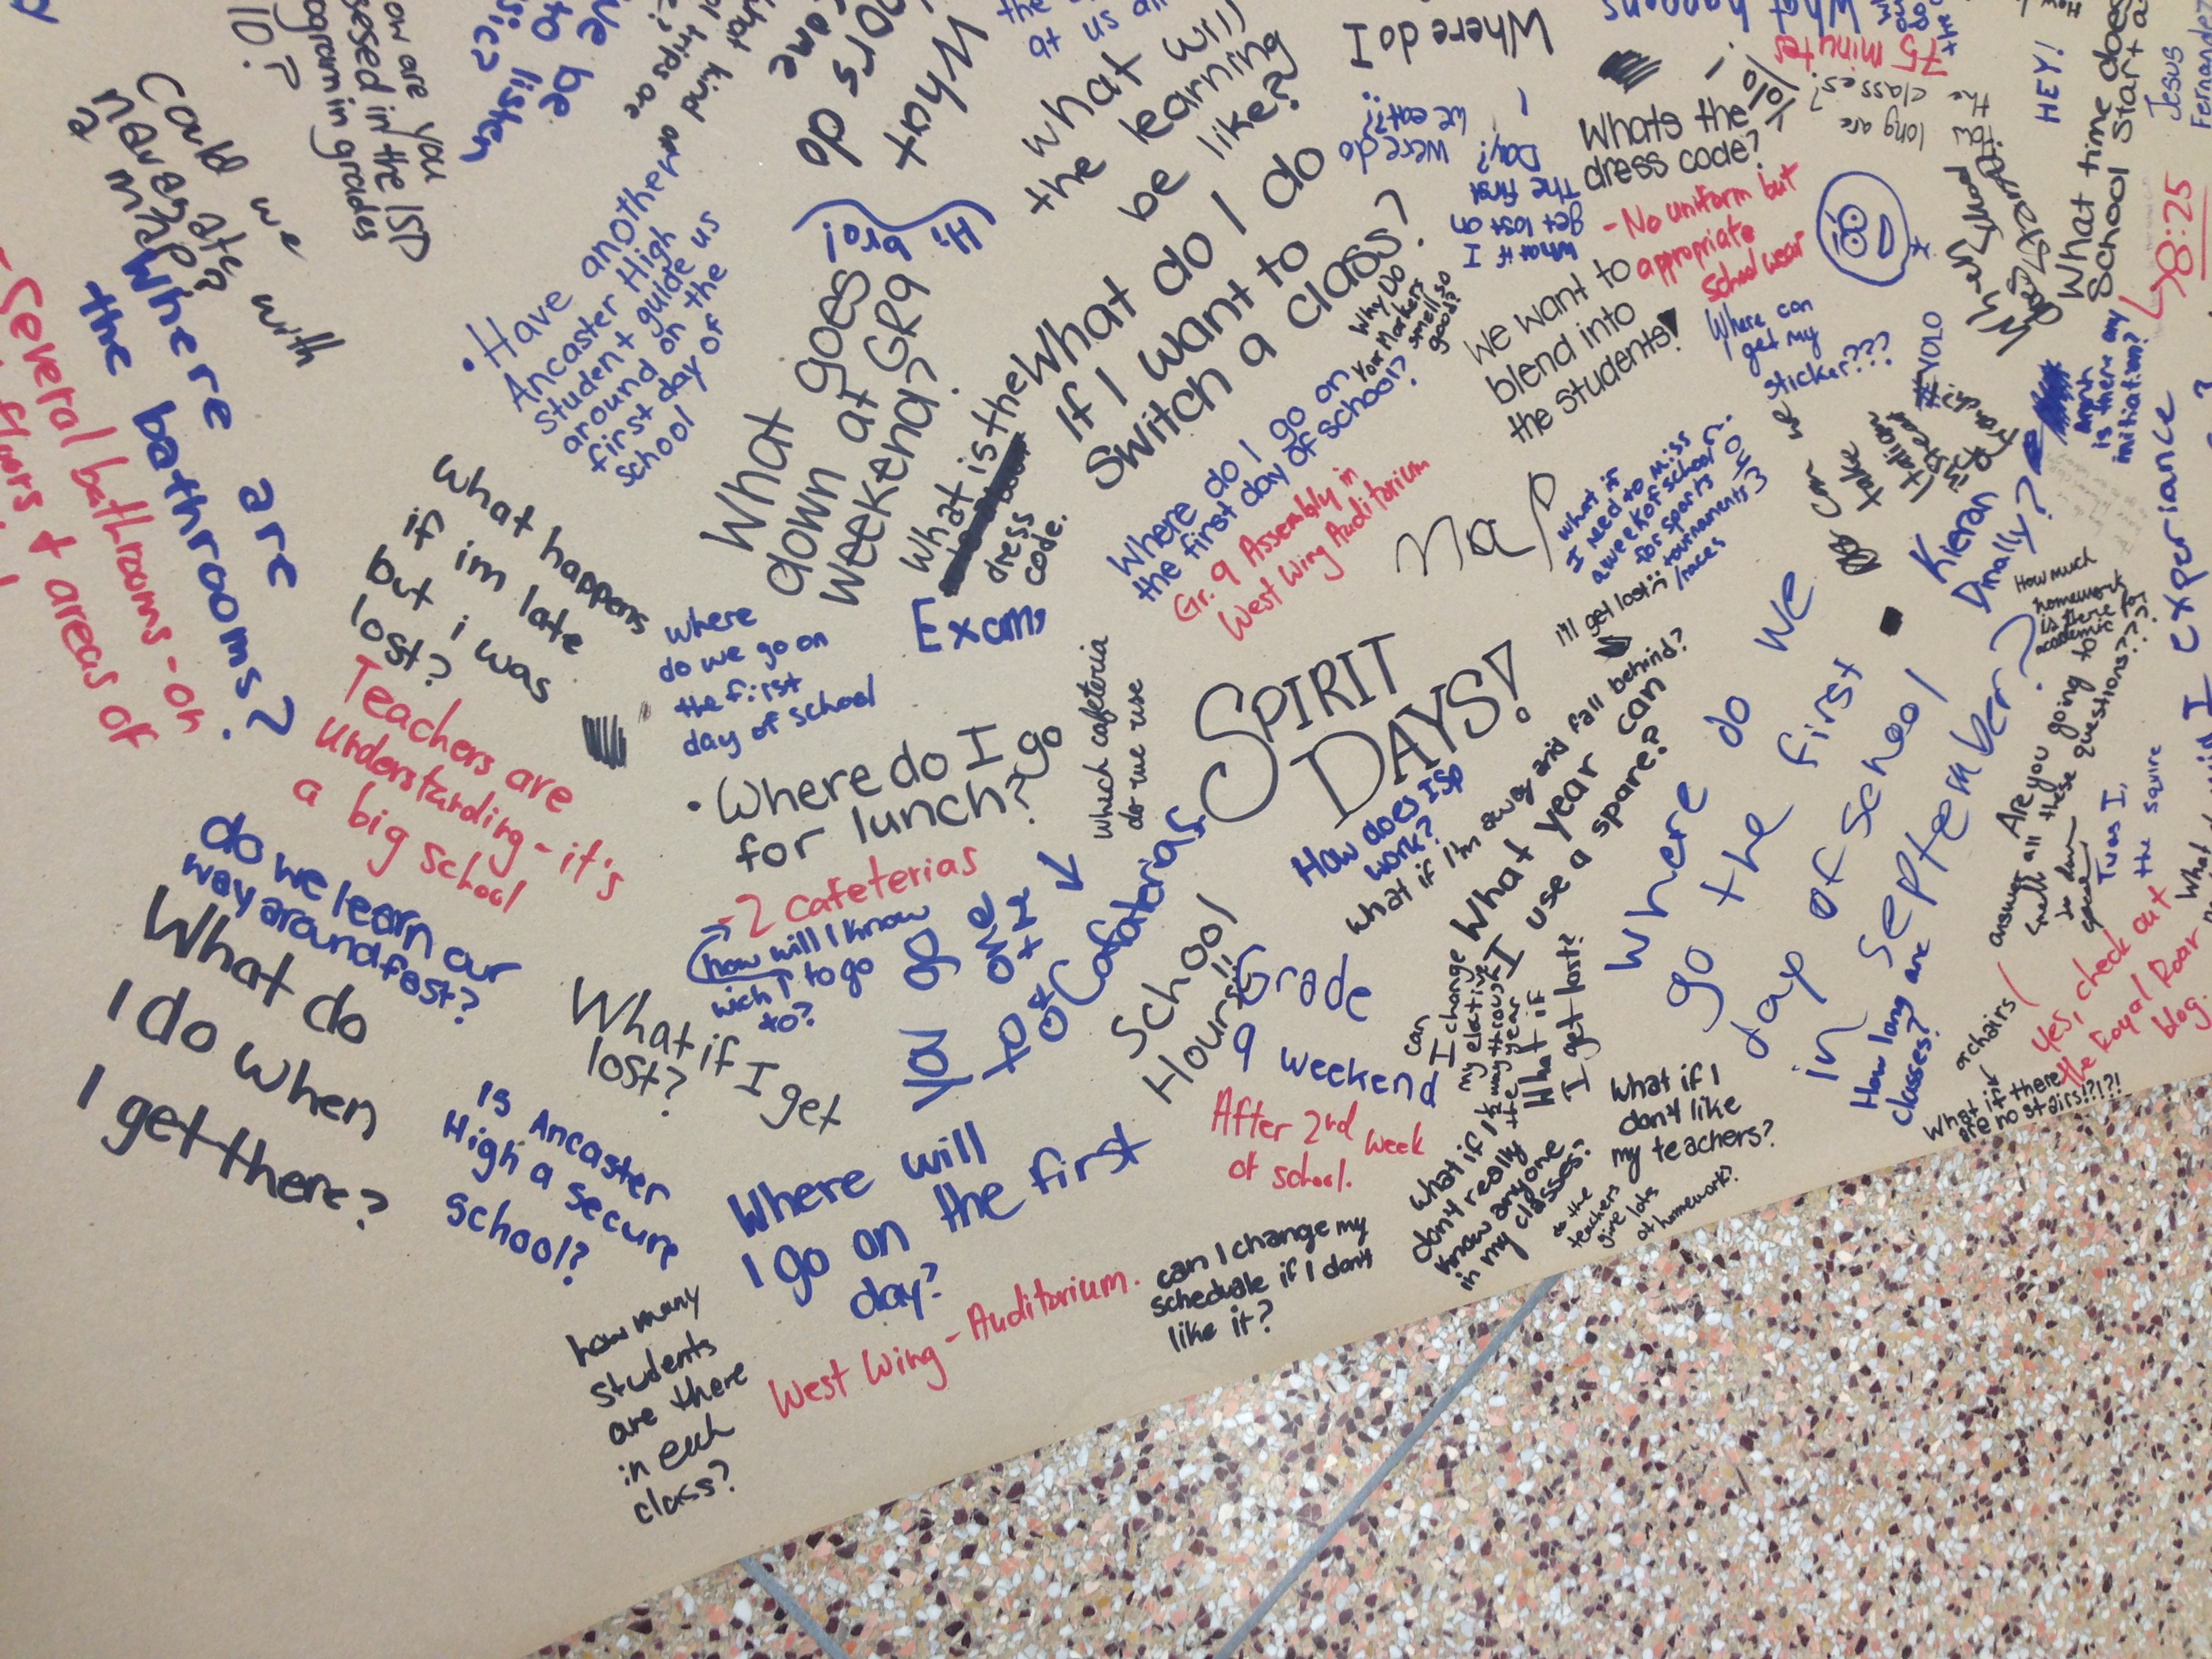 10?
ow are you
sesed in the ISP
ogram in grades
ve be
to listen
Could we
navegate?
with
a map?
Where are
the bathrooms?
-Several bathrooms - on
floors & areas of
• Have another
Ancaster High
student guide us
around on the
first day of
school
What goes
down at GR9
weekend?
What will
the learning
be like?
Hi
bro!
What do I do
If I want to
Switch a class?
What is the
dress
code.
Exams
Where do I
Were do
we eat?
What if I
get lost on
the first
Day?
Whats the
dress code?
- No uniform but
appropriate
School wear
We want to
blend into
the students!
Why Do
Your Markers
smell so
good?
Where do I go on
the first day of school?
Gr. 9 Assembly in
West Wing Auditorium
map
Where can
get my
sticker???
#YOLO
75 minutes
How
long are
the classes?
HEY!
What time does
School start a
8:25
Jesus
is there any
initiation?
Can we
take
Kieran
Dinally?
What if
I need to miss
a week of school
for sports
tournaments
/races
I'll get lost
What happens
if im late
but i was
lost?
Teachers are
Understanding - it's
a big school
where
do we go on
the first
day of school
• Where do I go
for lunch?
-2 cafeterias
how will I know
wich 1 to go
to?
which cafeteria
do we use
You go
to one
of the
Cafaterias
SPIRIT
DAYS!
How does ISP
work?
What if I'm away and fall behind?
What year can
I use a spare?
Where do we
go the first
day of school
in september?
How much
homework
is there for
academic
Are you going to
answer all these questions???
Twas I,
the squire
experiance
yes, check out
the Royal Roar
blog.
do we learn our
way around fast?
What do
I do when
I get there?
What if I get
lost?
School
Hours
Grade
9 weekend
After 2nd week
of school.
can
I change
my elective
1/2 way through
the year
What if
I get lost?
How long are
classes?
or chairs
What if there
are no stairs!!?!?!
Is Ancaster
High a secure
School?
Where will
I go on the first
day?
West Wing - Auditorium.
can I change my
schedule if I don't
like it?
What if I
don't really
know anyone
in my classes?
What if I
don't like
my teachers?
do the
teachers
give lots
of homework?
how many
students
are there
in each
class?